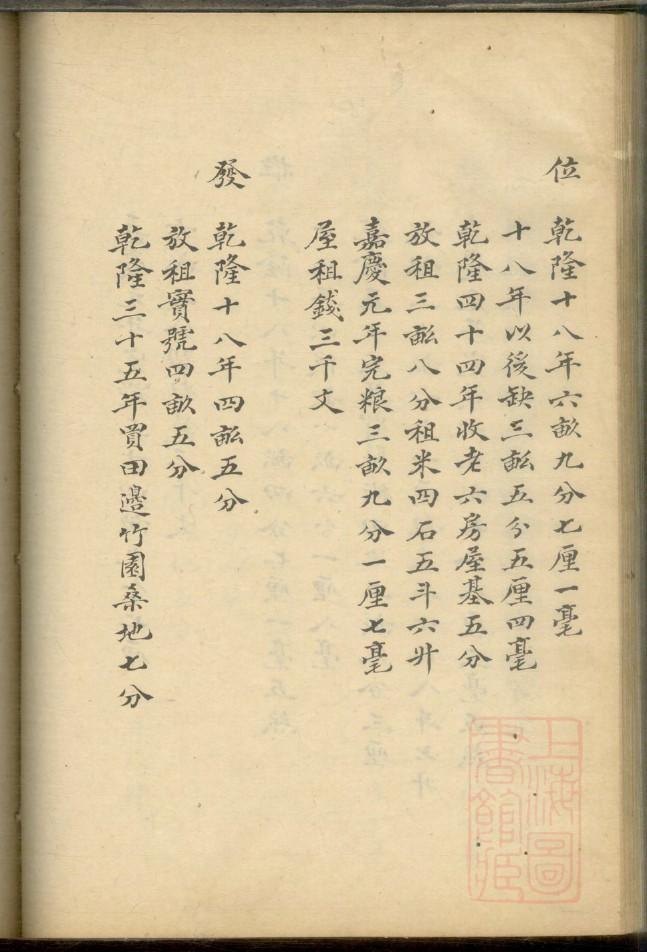 位
乾隆十八年六畝九分七厘一毫
十八年以後缺三畝五分五厘四毫
乾隆四十四年收老六房屋基五分
放租三畝八分租米四石五斗六升
嘉慶元年完粮三畝九分一厘七毫
屋租錢三千文
發
乾隆十八年四畝五分
放租實號四畝五分
乾隆三十五年買田邊竹園桑地七分
上海圖
書館藏